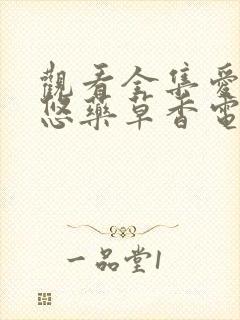 觀看全集愛
悠藥草香電
一品堂1